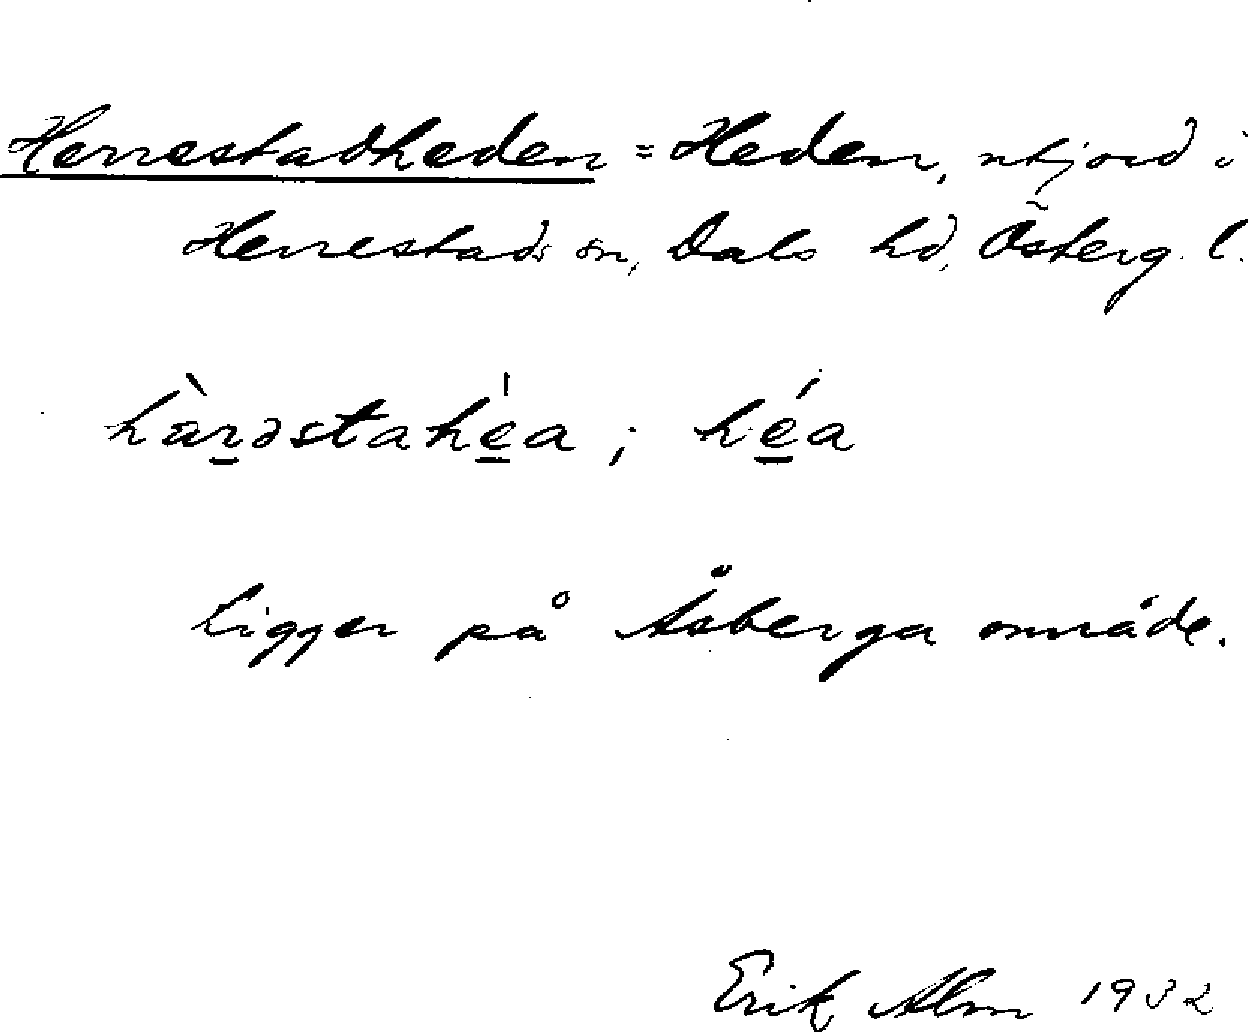 Herrestadheden = Heden, utjord i
Herrestads sn, Dals hd, Österg. l.
hàrəstahe̍a ; héa
Ligger på Åsberga område.
Erik Alm 1932